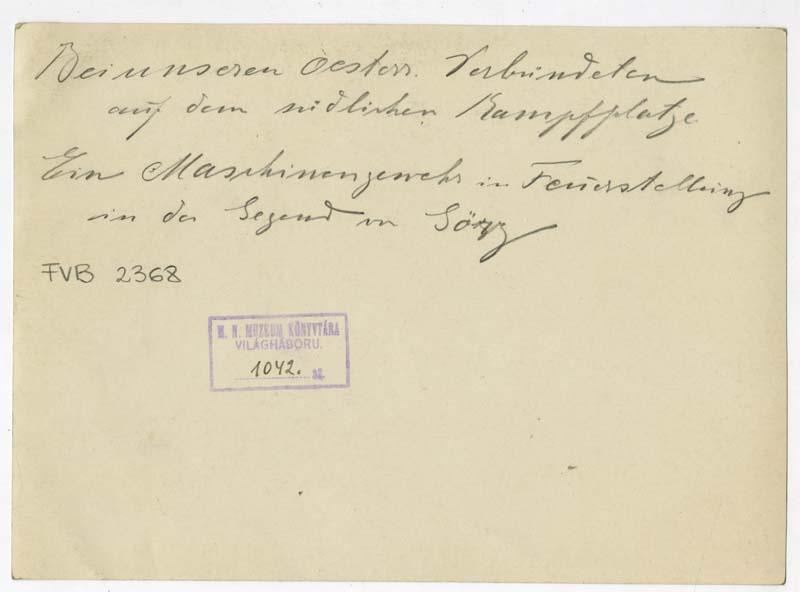 Bei unseren oesterr. Verbündeten
auf dem südlichen Kampfplatze
Ein Maschinengewehr in Feuerstellung
in der Gegend von Görz
FVB 2368
M. N. MUZEUM KÖNYVTÁRA
VILÁGHÁBORU.
1042. sz.